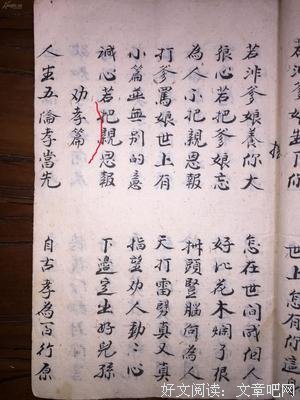 世上怎有你這
若非爹娘養你大 怎在世间成個人
狠心若把爹娘忘 好比花木焖了根
為人不把親恩報 頭豎腦何為人
打爹罵娘世上有 天打雷劈真又真
小篇並無别的意 指望劝人勤〻心
誠心若把親恩報 下邊定出好兒孫
劝孝篇
人生五倫孝當先 自古孝為百行原
好文阅读：文章吧网